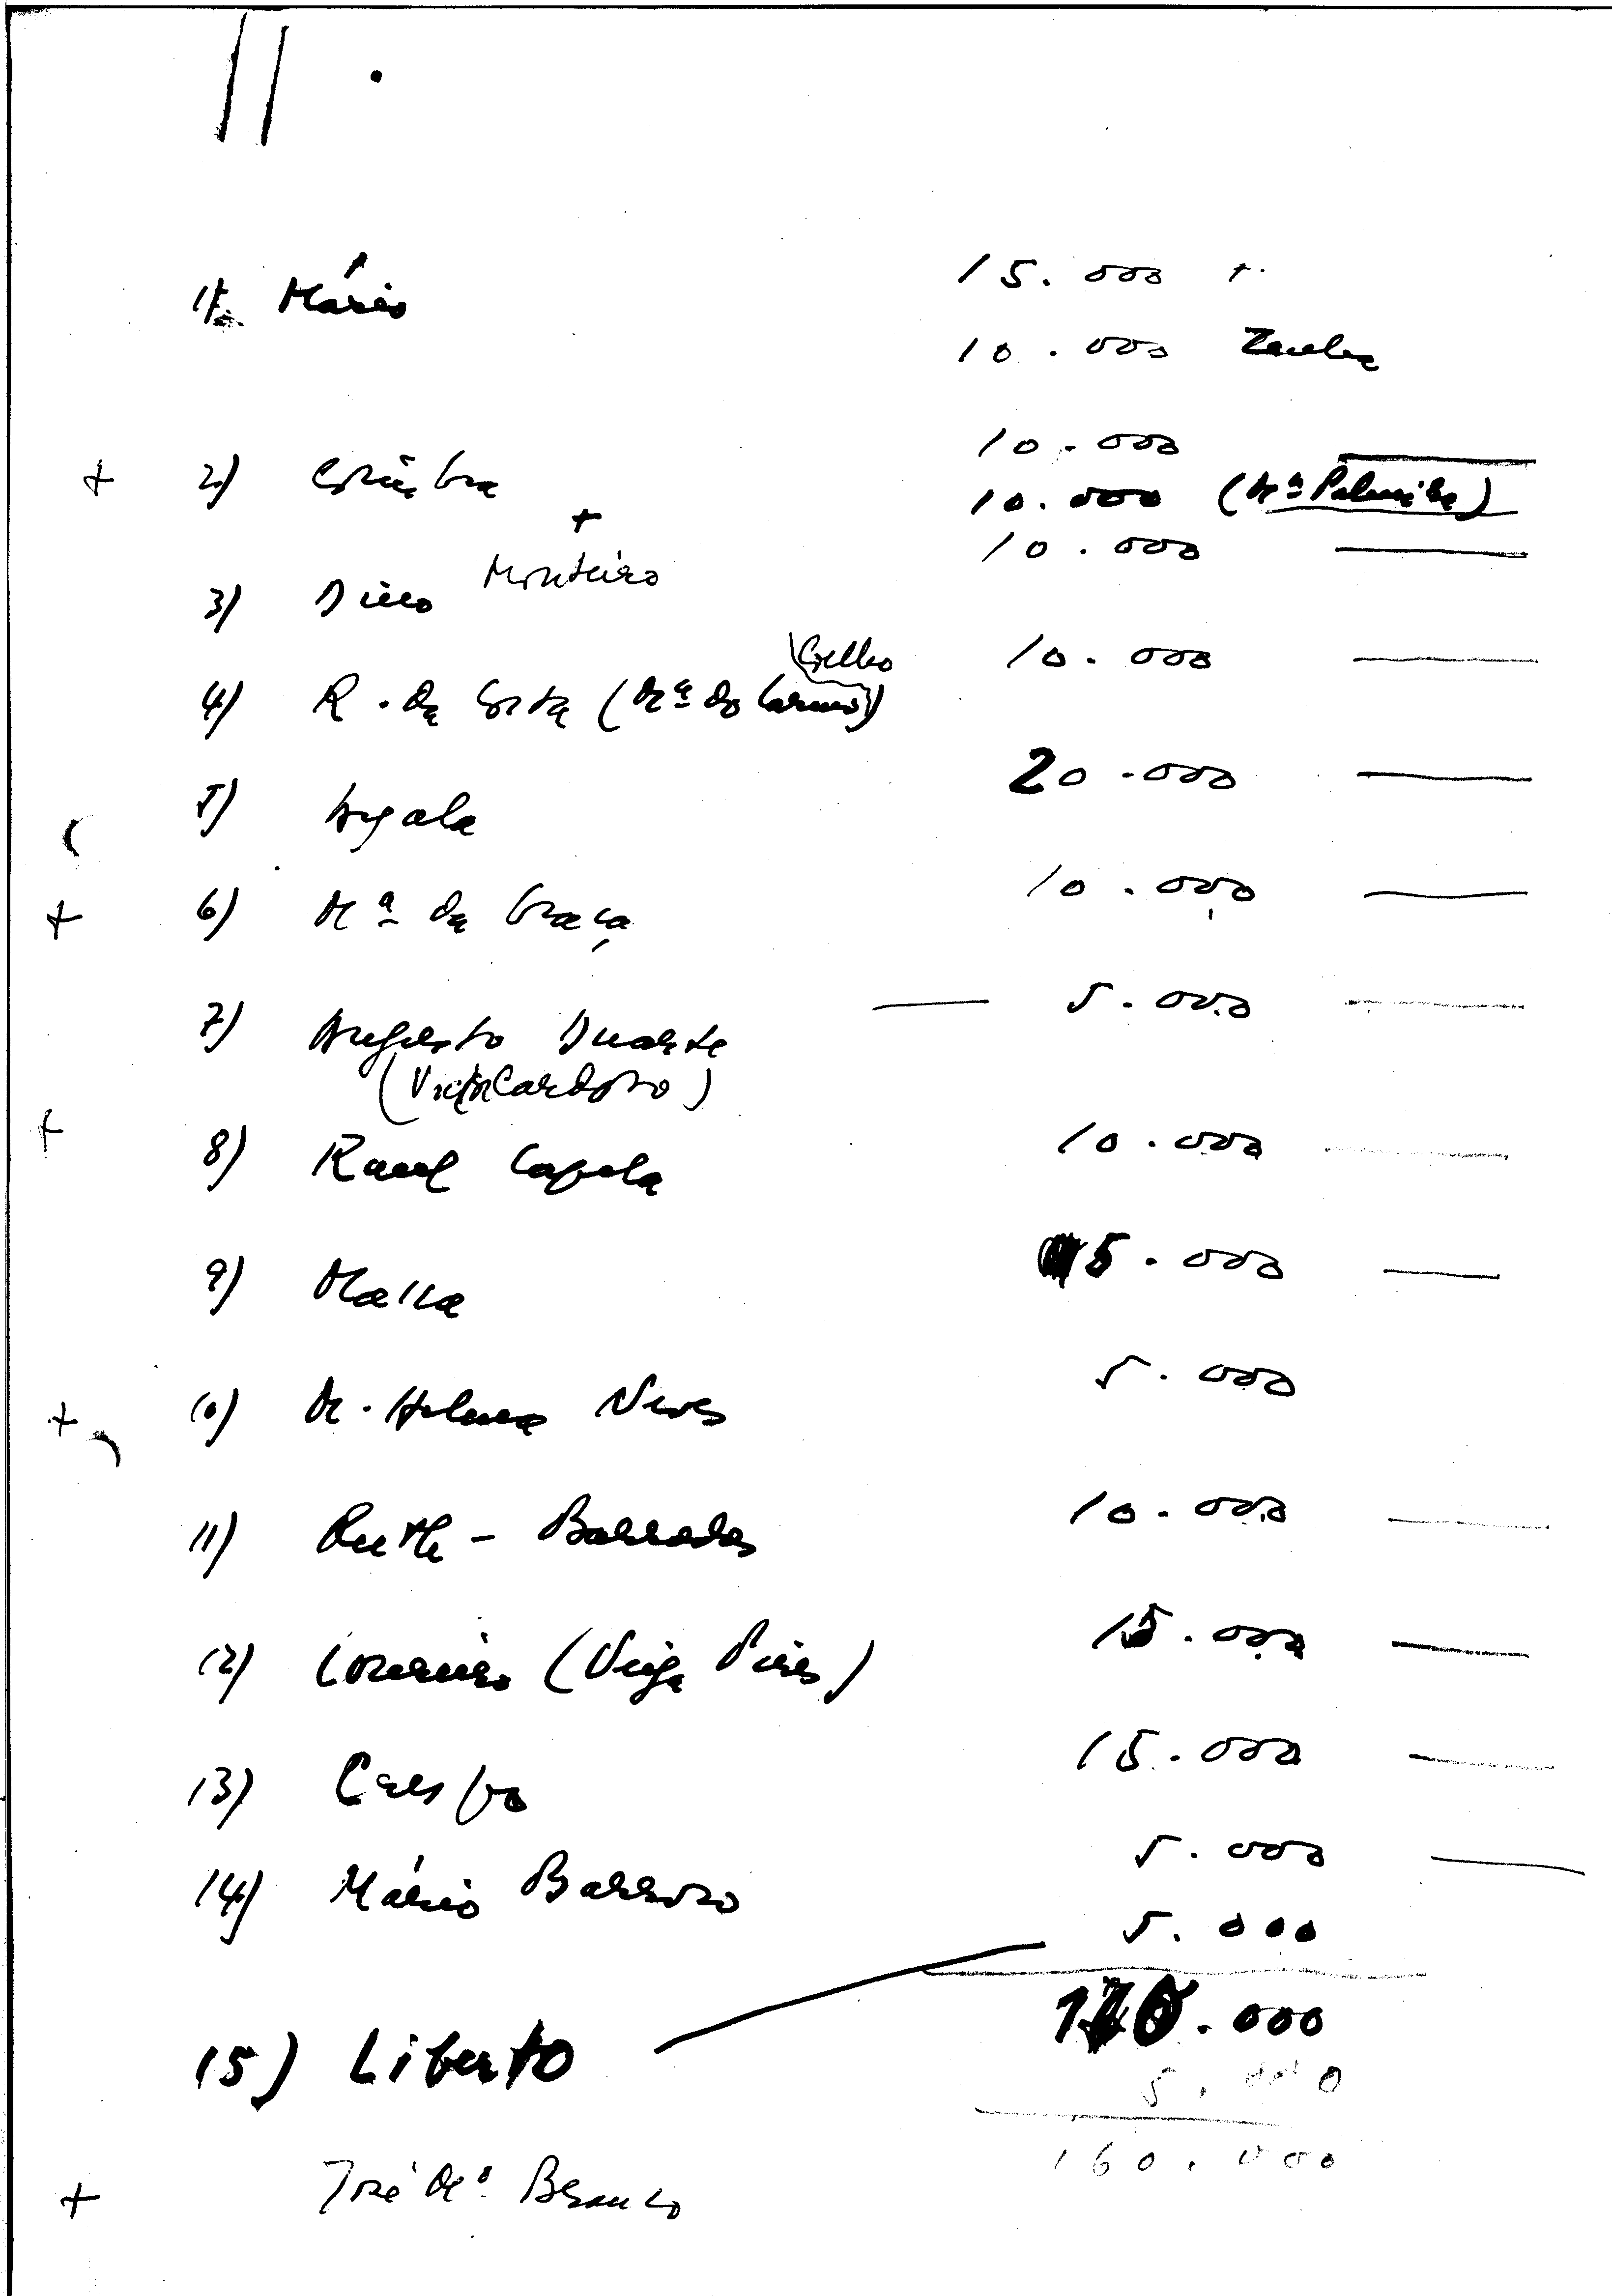 11.
1) Mário 15.000 +
10.000
10.000
+ 2) Coimbra 10.000 (Mª Palmira)
+ 10.000
3) Dino Monteiro
Coelho 10.000
4) R. da Costa (Mª do Carmo)
20.000
5) Ayala
10.000
+ 6) Mª da Graça
— 5.000
7) Augusto Duarte
(Victor Cardoso)
+ 8) Raul Capela 10.000
5.000
9) Maria
5.000
+ 10) M. Helena Neves
10.000
11) Ruth - Barradas
15.000
12) Loureiro (Veiga Pires)
15.000
13) Crespo
5.000
14) Mário Barroso
5.000
.000
15) Liberto
5.000
160.000
+ José Mª Branco